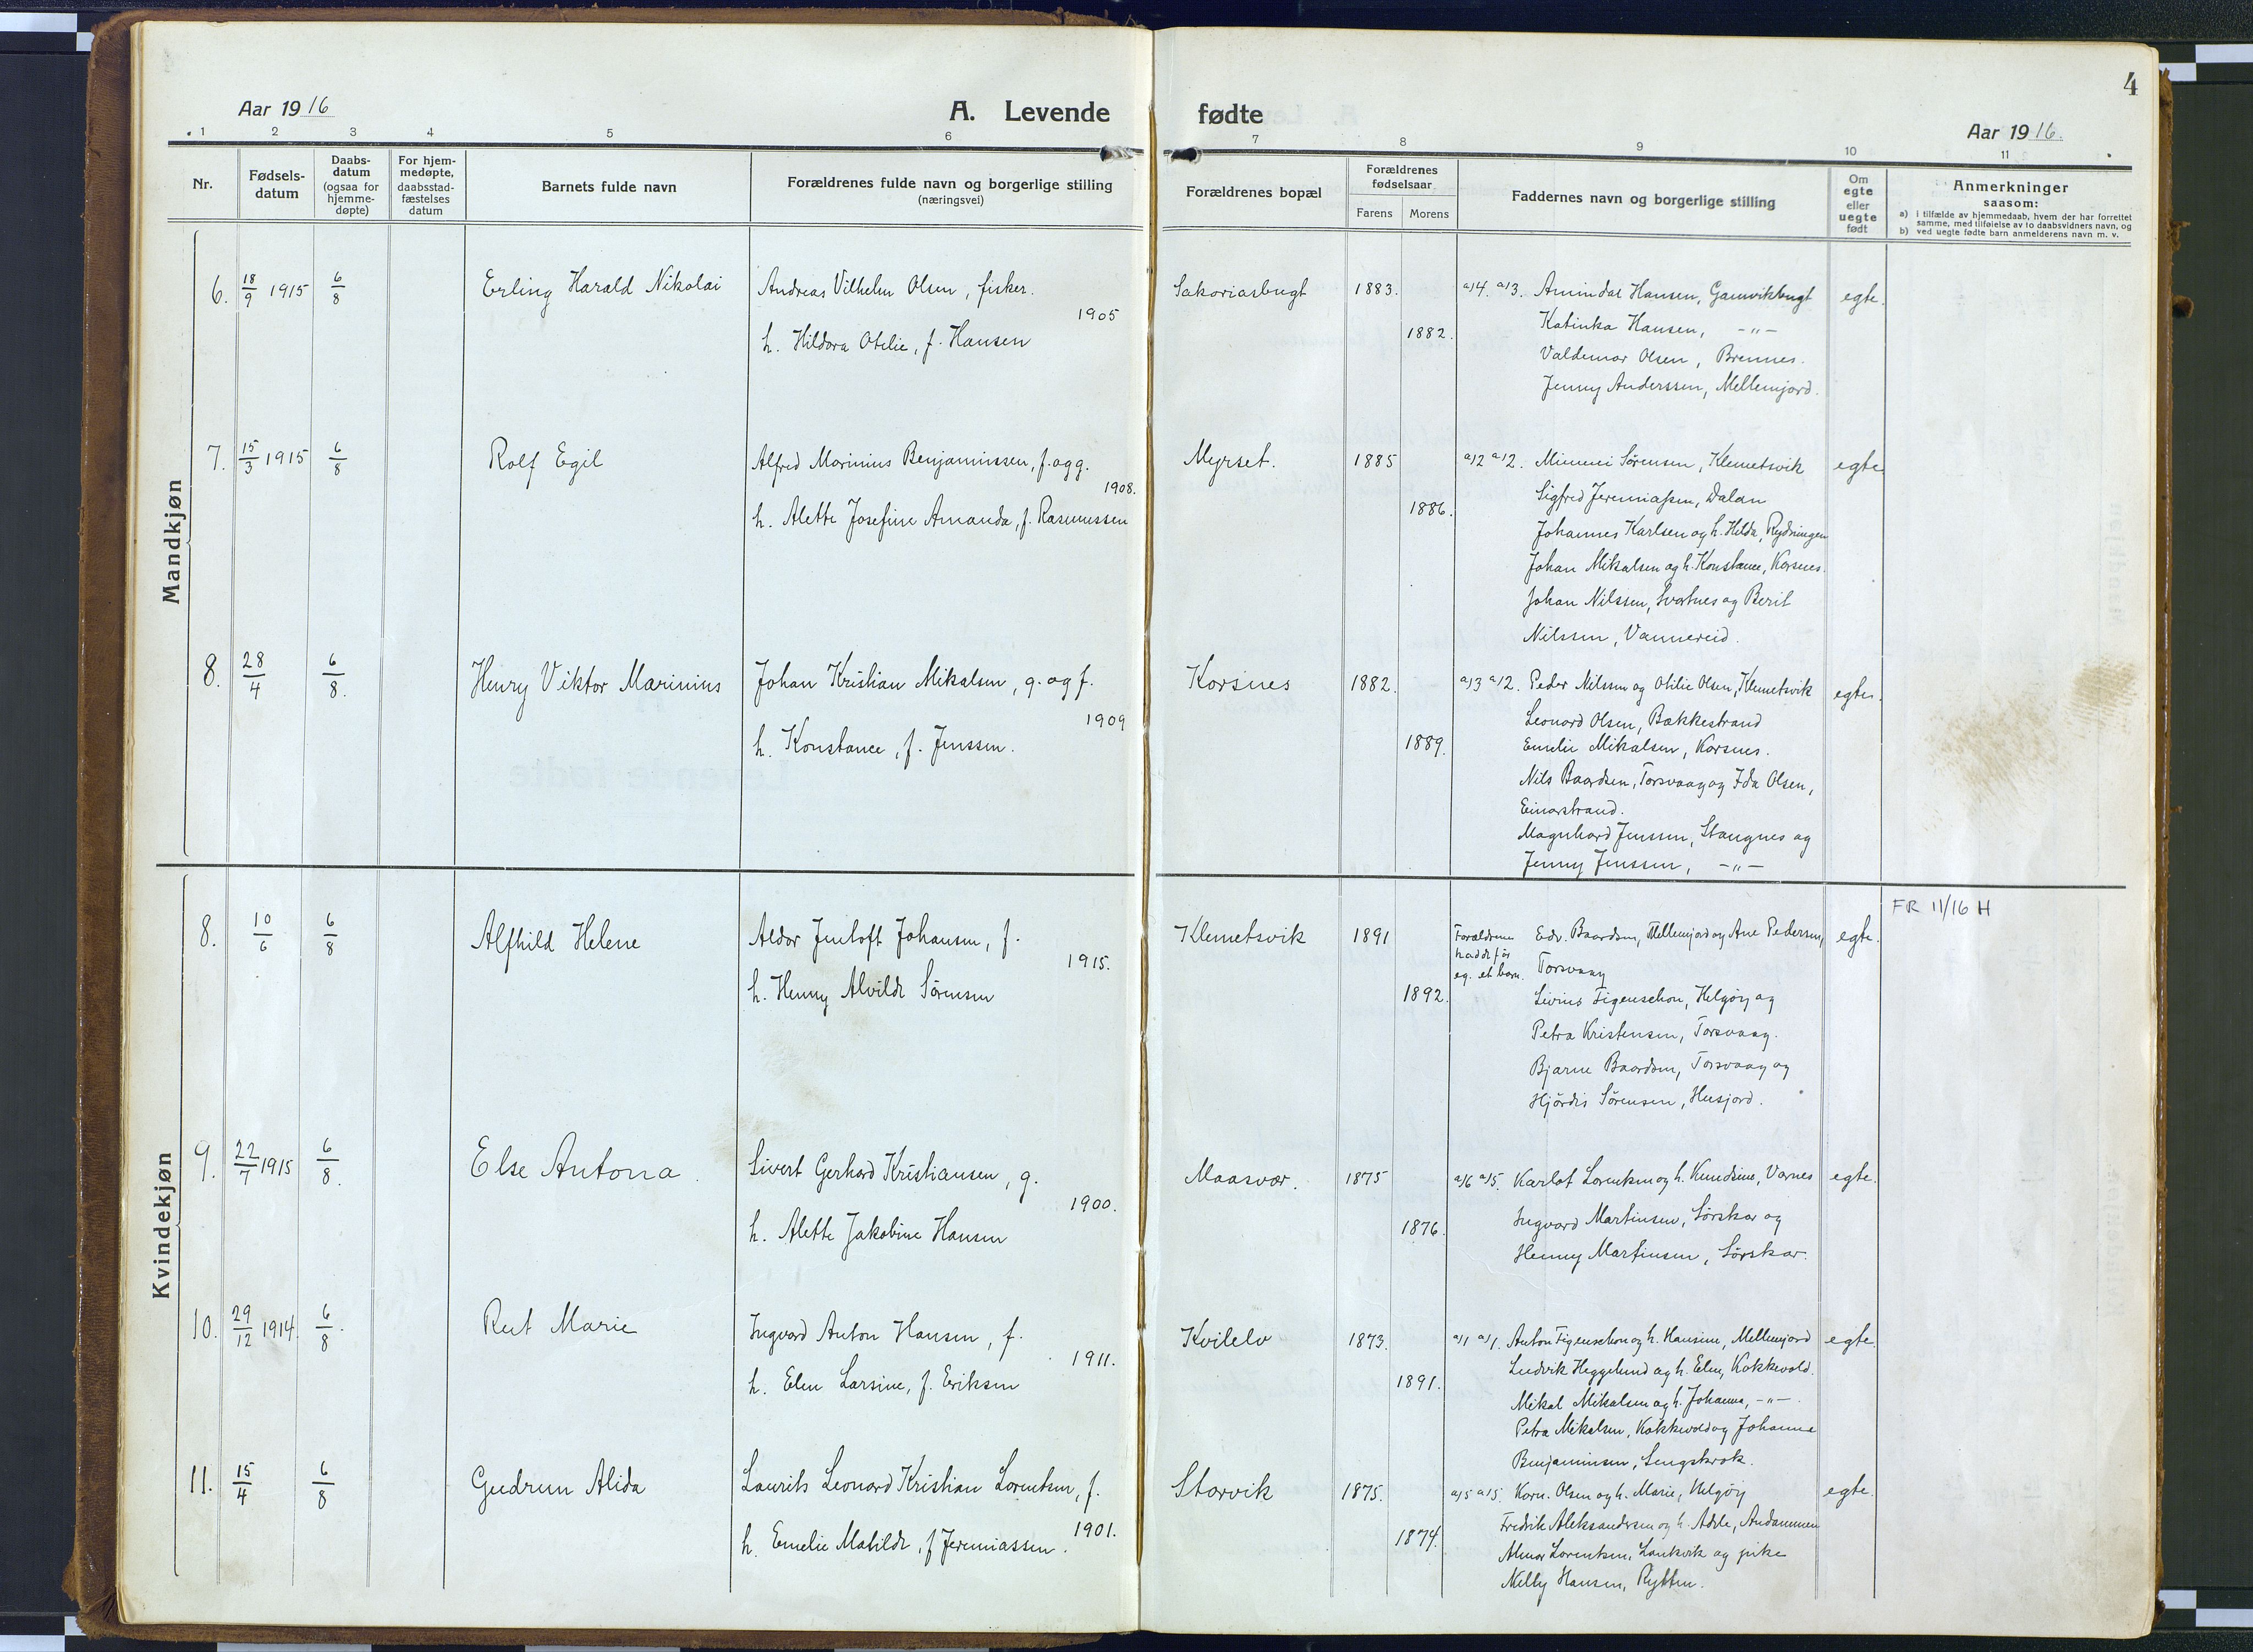 4
Aar 1916
A. Levende fødte
Aar 1916.
1 2 3 4 5 6 7 8 9 10 11
Nr.
Fødsels-
datum
Daabs-
datum
(ogsaa for
hjemme-
døpte)
For hjem-
medøpte,
daabsstad-
fæstelses
datum
Barnets fulde navn
Forældrenes fulde navn og borgerlige stilling
(næringsvei)
Forældrenes bopæl
Forældrenes
fødselsaar
Farens Morens
Faddernes navn og borgerlige stilling
Om
egte
eller
uegte
født
Anmerkninger
saasom:
a) i tilfælde av hjemmedaab, hvem der har forrettet
samme, med tilføielse av to daabsvidners navn, og
b) ved uegte fødte barn anmelderens navn m. v.
Mandkjøn
6. 18/9 1915 6/8 Erling Harald Nikolai
Andreas Vilhelm Olsen, fisker.
1905
h. Hildora Otelie, f. Hansen
Sakoriasbugt 1883.
1882.
a14. a13. Amindal Hansen, Gamvikbugt egte.
Katinka Hansen, -"-
Valdemar Olsen, Brennes.
Jenny Anderssen, Mellemjord.
7. 15/3 1915 6/8 Rolf Egil
Alfred Marinius Benjaminssen, f. og g.
1908.
h. Alette Josefine Amanda, f. Rasmussen
Myrset. 1885
1886.
a12 a12. Mimmi Sørensen, Klemetsvik egte
Sigfred Jeremiassen, Dalan
Johannes Karlsen og h. Hilda, Rydningen
Johan Mikalsen og h. Konstance, Korsnes.
Johan Nilssen, Svartnes og Berit
Nilssen, Vannereid.
8. 28/4 6/8. Henry Viktor Marinius
Johan Kristian Mikalsen, g. og f.
1909
h. Konstance, f. Jenssen.
Korsnes 1882.
1889.
a13 a12. Peder Nilssen og Otilie Olsen, Klemetsvik egte.
Leonard Olsen, Bækkestrand
Emelie Mikalsen, Korsnes.
Nils Baardsen, Torsvaag og Ida Olsen,
Einarstrand.
Magnhard Jenssen, Stangnes og
Jenny Jenssen, -"-
Kvindekjøn
8. 10/6 6/8 Alfhild Helene
Aldor Jentoft Johansen, f.
1915.
h. Henny Alvilde Sørensen
Klemetsvik 1891
1892.
Forældrene
hadde før
eg. et barn.
Edv. Baardsen, Mellemjord og Ane Pedersen, egte.
Torsvaag
Livius Figenschou, Helgøy og
Petra Kristensen, Torsvaag.
Bjarne Baardsen, Torsvaag og
Hjørdis Sørensen, Husjord.
FR 11/16 H
9. 22/7 1915 6/8. Else Antona.
Sivert Gerhard Kristiansen, g.
1900.
h. Alette Jakobine Hansen
Maasvær. 1875
1876.
a16 a15. Karlot Lorentsen og h. Knudsine, Varnes egte.
Ingvard Martinsen, Sørskar og
Henny Martinsen, Sørskar.
10. 29/12 1914. 6/8. Rut Marie
Ingvard Anton Hansen, f.
1911.
h. Elen Larsine, f. Eriksen
Kvilelv 1873.
1891.
a11 a11. Anton Figenschou og h. Hansine, Mellemjord egte.
Ludvik Heggelund og h. Elen, Kokkevold.
Mikal Mikalsen og h. Johanna, -"-
Petra Mikalsen, Kokkevold og Johanne
Benjaminsen, Lengskrok.
11. 15/4 6/8 Gudrun Alida
Laurits Leonard Kristian Lorentsen, f.
1901.
h. Emelie Matilde, f. Jeremiassen.
Storvik 1875.
1874.
a15 a15. Korn. Olsen og h. Marie, Helgøy egte.
Fredrik Aleksandersen og h. Adele, Andammen
Almar Lorentsen, Lankvik og pike
Nelly Hansen, Rytten.